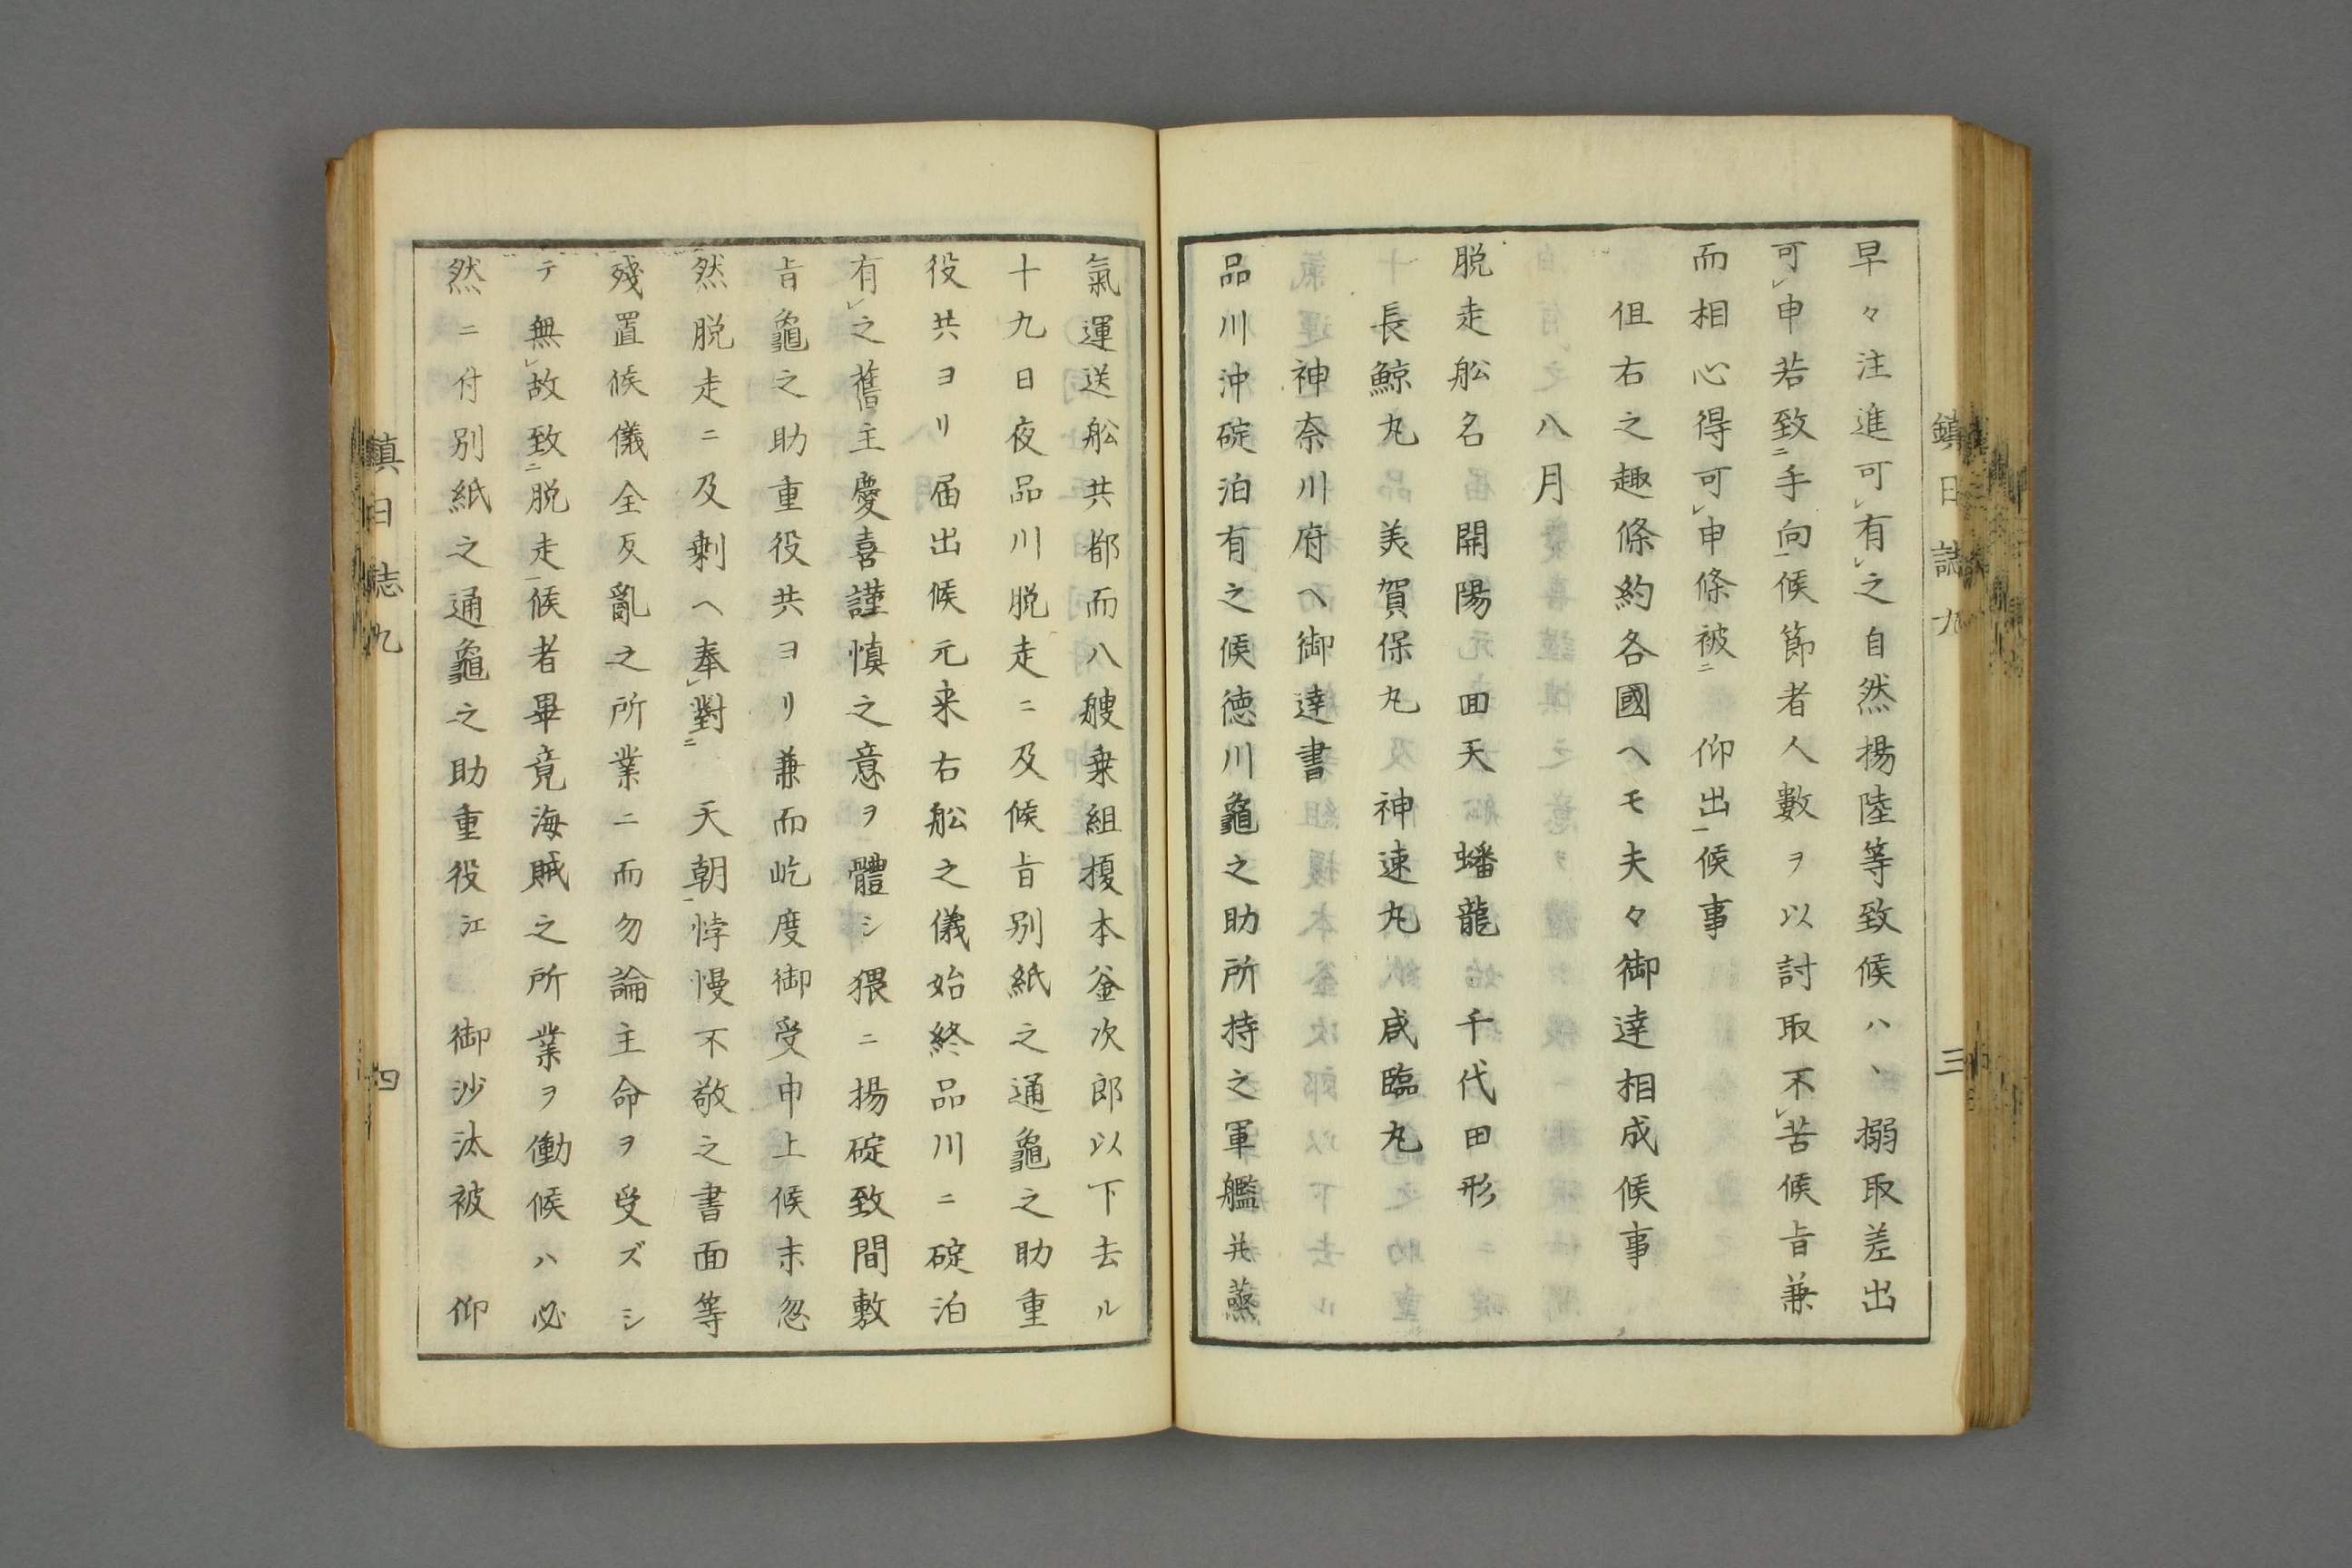 早々注進可㆑有㆑之自然揚陸等致候ハヽ搦取差出
可㆑申若致㆓手向㆒候節者人數ヲ以討取不㆑苦候旨兼
而相心得可㆑申條被㆓　仰出㆒候事
但右之趣條約各國ヘモ夫々御達相成候事
八月
脱走舩名　開陽　回天　蟠龍　千代田形
長鯨丸　美賀保丸　神速丸　咸臨丸
神奈川府ヘ御達書
品川沖碇泊有之候徳川龜之助所持之軍艦并蒸
鎮日誌九
三
氣運送舩共都而八艘乗組榎本釜次郎以下去ル
十九日夜品川脱走ニ及候旨別紙之通龜之助重
役共ヨリ届出候元来右舩之儀始終品川ニ碇泊
有㆑之舊主慶喜謹慎之意ヲ體シ猥ニ揚碇致間敷
旨龜之助重役共ヨリ兼而屹度御受申上候末忽
然脱走ニ及剰ヘ奉㆑對㆓　天朝㆒悖慢不敬之書面等
殘置候儀全反亂之所業ニ而勿論主命ヲ受ズシ
テ無㆑故致㆓脱走㆒候者畢竟海賊之所業ヲ働候ハ必
然ニ付別紙之通龜之助重役江　御沙汰被　仰
鎮日誌九
四